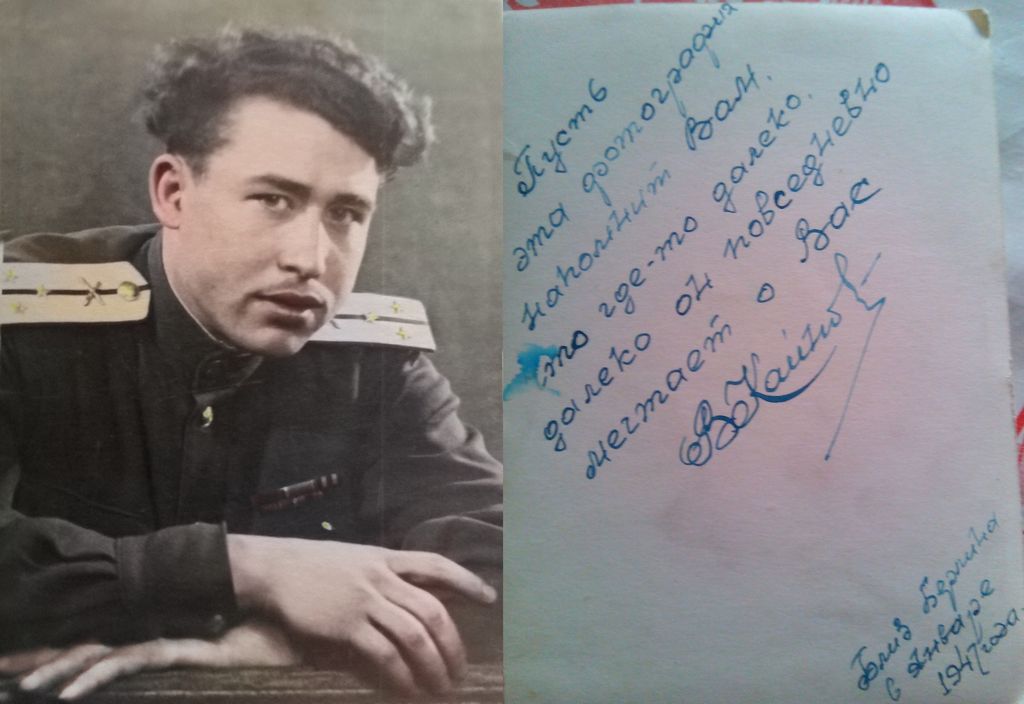 Пусть
эта фотография
напомнит Вам,
то где-то далеко.
далеко он повседневно
мечтает о Вас
ВКаинов
Близ Берлина
в Январе
1947 года.